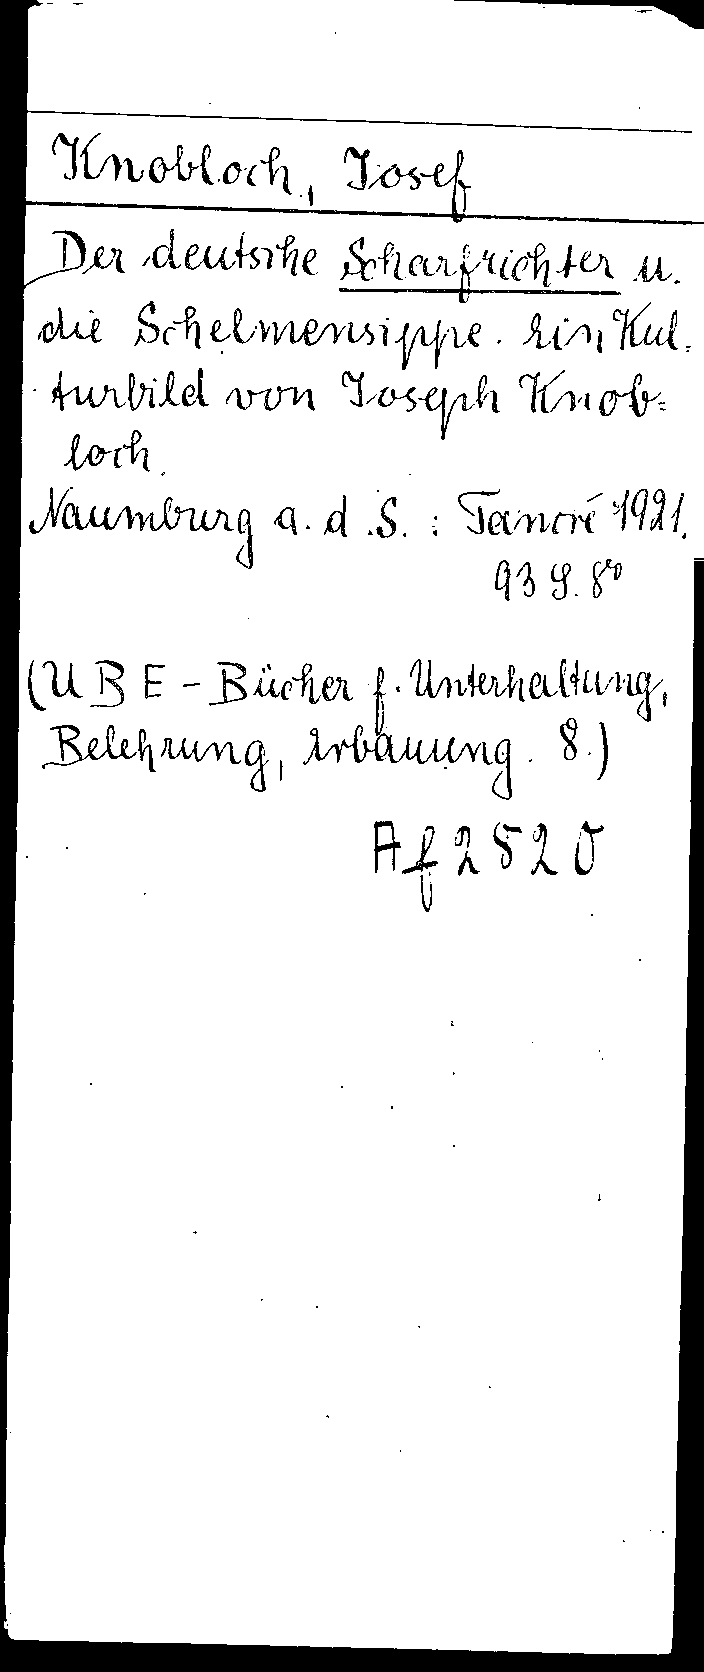 Knobloch, Josef
Der deutsche Scharfrichter u.
die Schelmensippe. Ein Kul-
turbild von Joseph Knob-
loch.
Naumburg a. d. S. : Tancré 1921.
93 S. 8°
(U B E - Bücher f. Unterhaltung,
Belehrung, Erbauung. 8.)
Af 2520